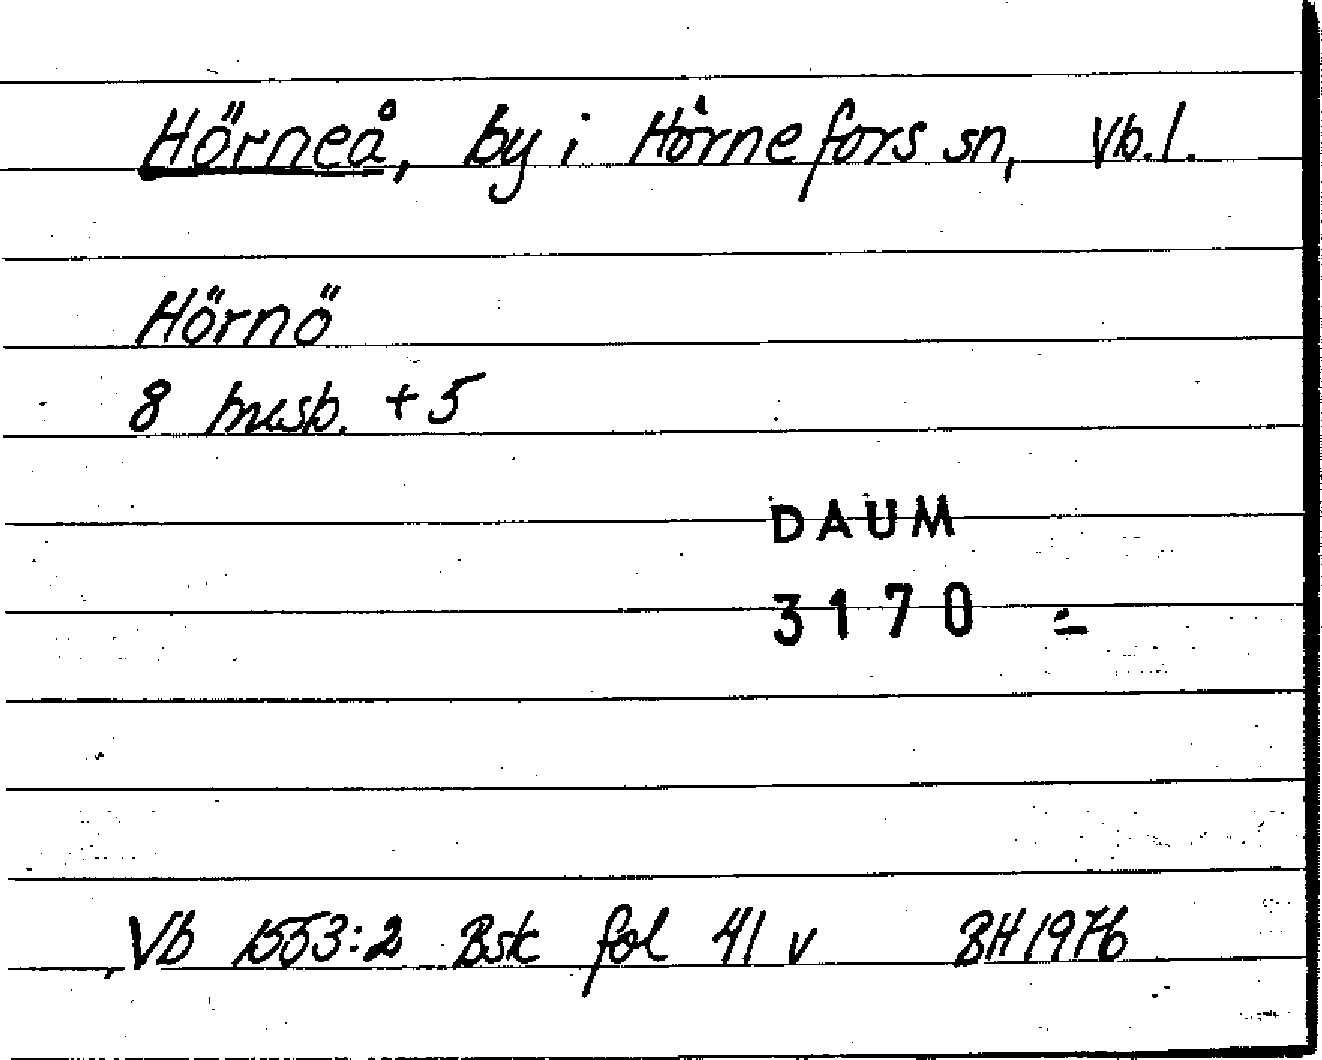 Hörneå, by i Hörnefors sn, Vb.l.
Hörnö
8 masb. + 5
DAUM
3170
Vb 1553:2 Bsk fol 41 v BH 1976